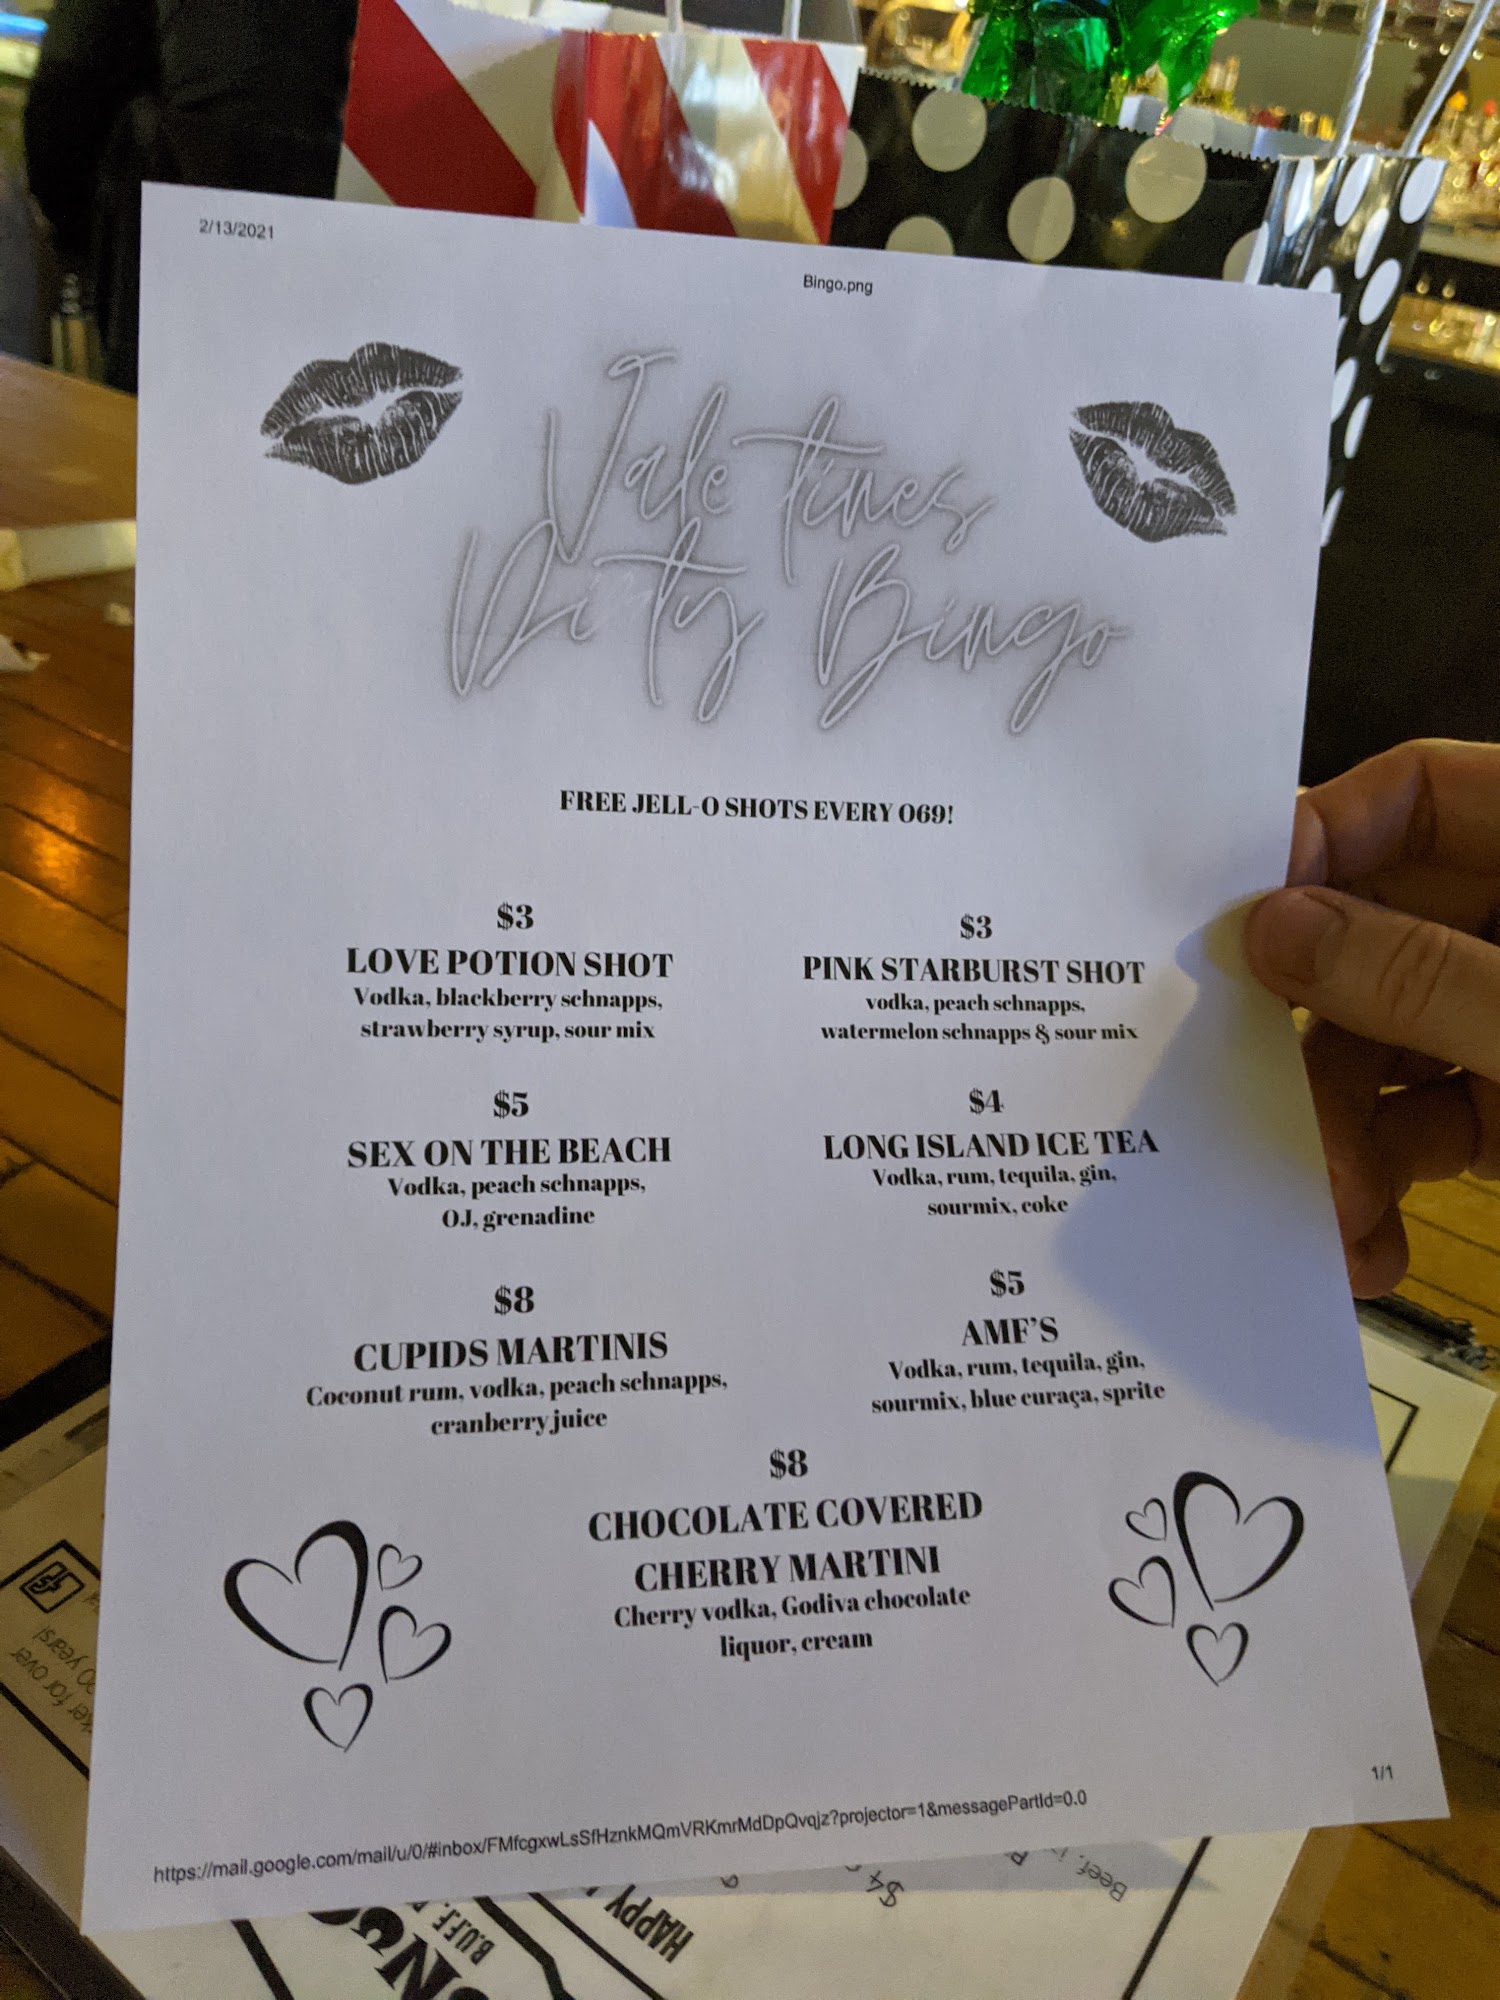 2/13/2021
Bingo.png
Valentines
Dirty Bingo
FREE JELL-O SHOTS EVERY O69!
$3
LOVE POTION SHOT
Vodka, blackberry schnapps,
strawberry syrup, sour mix
$3
PINK STARBURST SHOT
vodka, peach schnapps,
watermelon schnapps & sour mix
$5
SEX ON THE BEACH
Vodka, peach schnapps,
OJ, grenadine
$4
LONG ISLAND ICE TEA
Vodka, rum, tequila, gin,
sourmix, coke
$8
CUPIDS MARTINIS
Coconut rum, vodka, peach schnapps,
cranberry juice
$5
AMF'S
Vodka, rum, tequila, gin,
sourmix, blue curaça, sprite
$8
CHOCOLATE COVERED
CHERRY MARTINI
Cherry vodka, Godiva chocolate
liquor, cream
1/1
https://mail.google.com/mail/u/0/#inbox/FMfcgxwLsSfHznkMQmVRKmrMdDpQvqjz?projector=1&messagePartId=0.0
for over
years!
HAPPY
B.U.F.F.
$4
Beef,